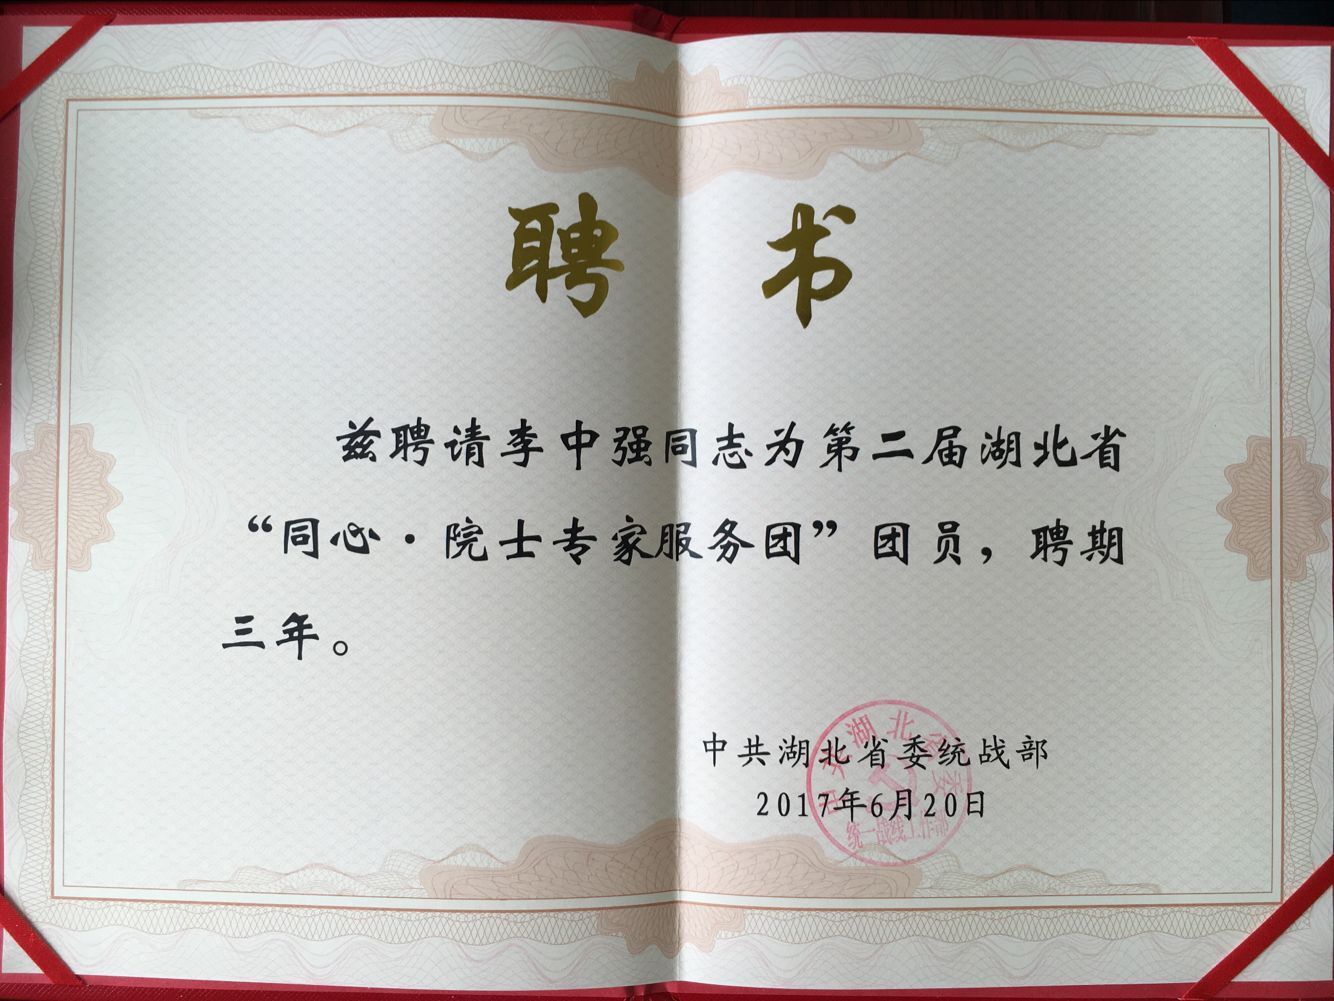 聘 书
兹聘请李中强同志为第二届湖北省
“同心·院士专家服务团”团员，聘期
三年。
中共湖北省委统战部
2017年6月20日
中共湖北省委
统一战线工作部